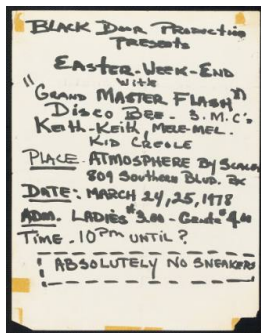 BLACK DOOR PRODUCTION
PRESENTS
EASTER-WEEK-END
WITH
"GRAND MASTER FLASH"
DISCO BEE - 3. M.C's
KEITH-KEITH, MELE-MEL.
KID CREOLE
PLACE. ATMOSPHERE BY
809 SOUTHERN BLVD. BX
DATE: MARCH 24, 25, 1978
ADM. LADIES $3.00 - GENTS $4.00
TIME. 10PM UNTIL ?
ABSOLUTELY NO SNEAKERS